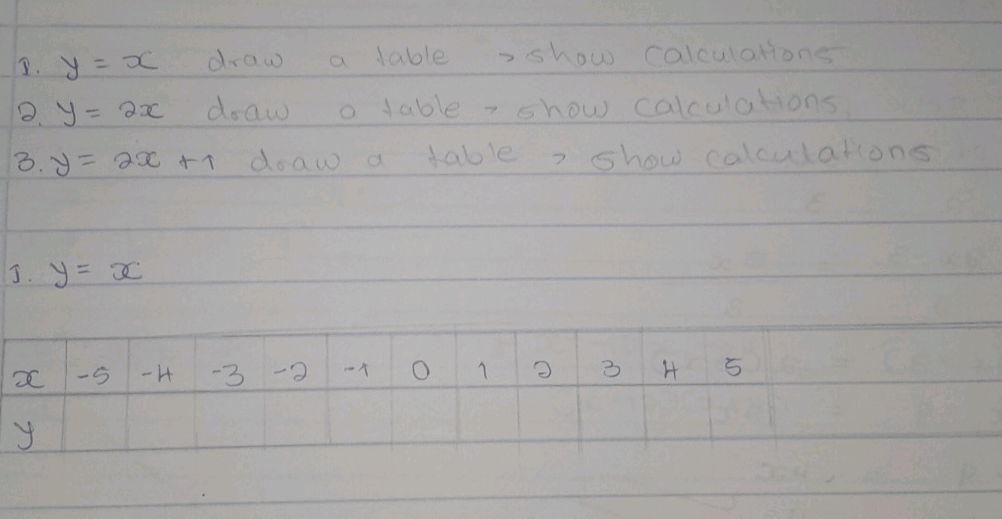 1. y = x draw a table > show calculations
2. y = 2x draw a table > show calculations
3. y = 2x + 1 draw a table > show calculations
1. y = x
x -5 -4 -3 -2 -1 0 1 2 3 4 5
y